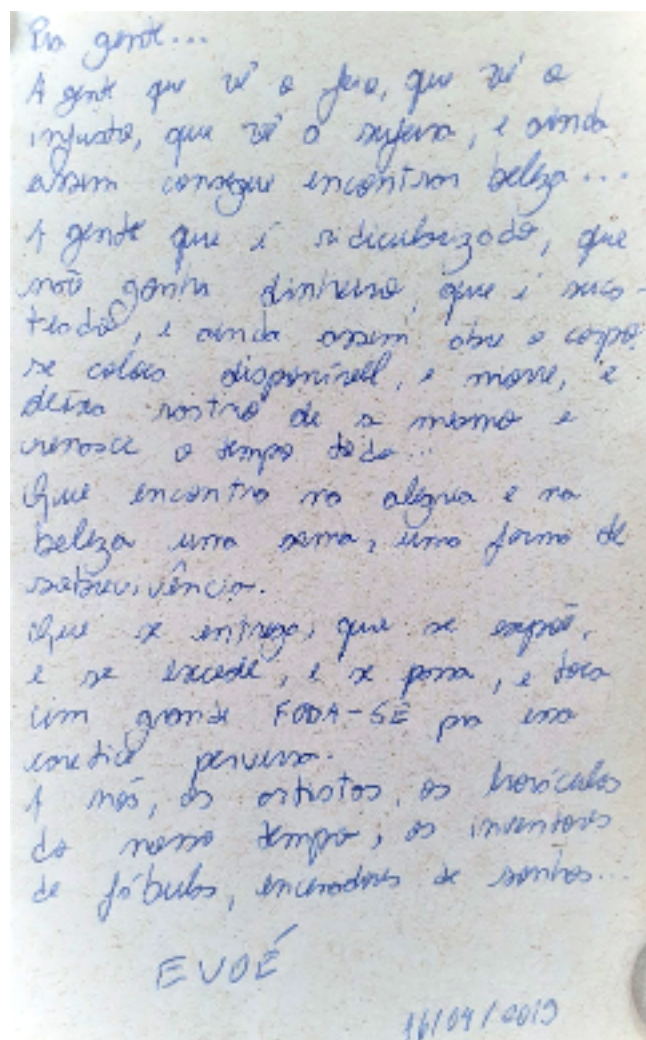 Pra gente...
A gente que vê o feio, que vê o
injusto, que vê o sujeira, e ainda
assim consegue encontrar beleza...
A gente que é ridicularizada, que
não ganha dinheiro, que é suca-
teada, e ainda assim abre o corpo,
se coloca disponível, e morre, e
deixa rastro de si mesmo e
renasce o tempo todo...
Que encontra na alegria e na
beleza uma arma, uma forma de
sobrevivência.
Que se entrega, que se expõe,
e se excede, e se para, e toca
um grande FODA-SE pra essa
caretice perversa.
A nós, os artistas, os
do nosso tempo, os inventores
de fábulas, encenadores de sonhos...
EVOÉ
16/04/2019